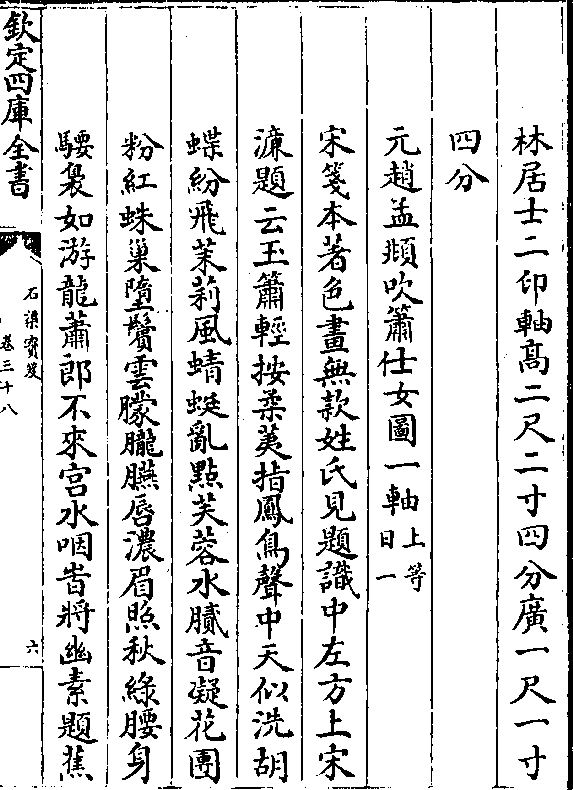 林居士二印軸髙二尺二寸四分廣一尺一寸
四分
元趙孟頫吹簫仕女圖一軸上等
日一
宋箋本著色畫無款姓氏見題識中左方上宋
濓題云玉簫輕按柔荑指鳳鳥聲中天似洗胡
蝶紛飛茉莉風蜻蜓亂點芙蓉水膩音凝花團
粉紅蛛巢墮鬢雲朦朧臙唇濃眉照秋綠腰身
騕褭如游龍蕭郎不來宫水咽昔將幽素題蕉
欽定四庫全書
石渠寳笈
卷三十八
六